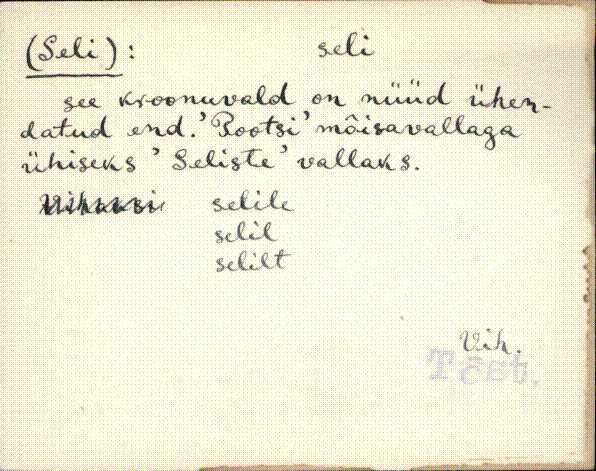 (Seli): seli
see kroonuvald on nüüd ühen-
datud end. 'Pootsi' mõisavallaga
ühiseks 'Seliste' vallaks.
selile
selil
selilt
Vih.
Tõst.